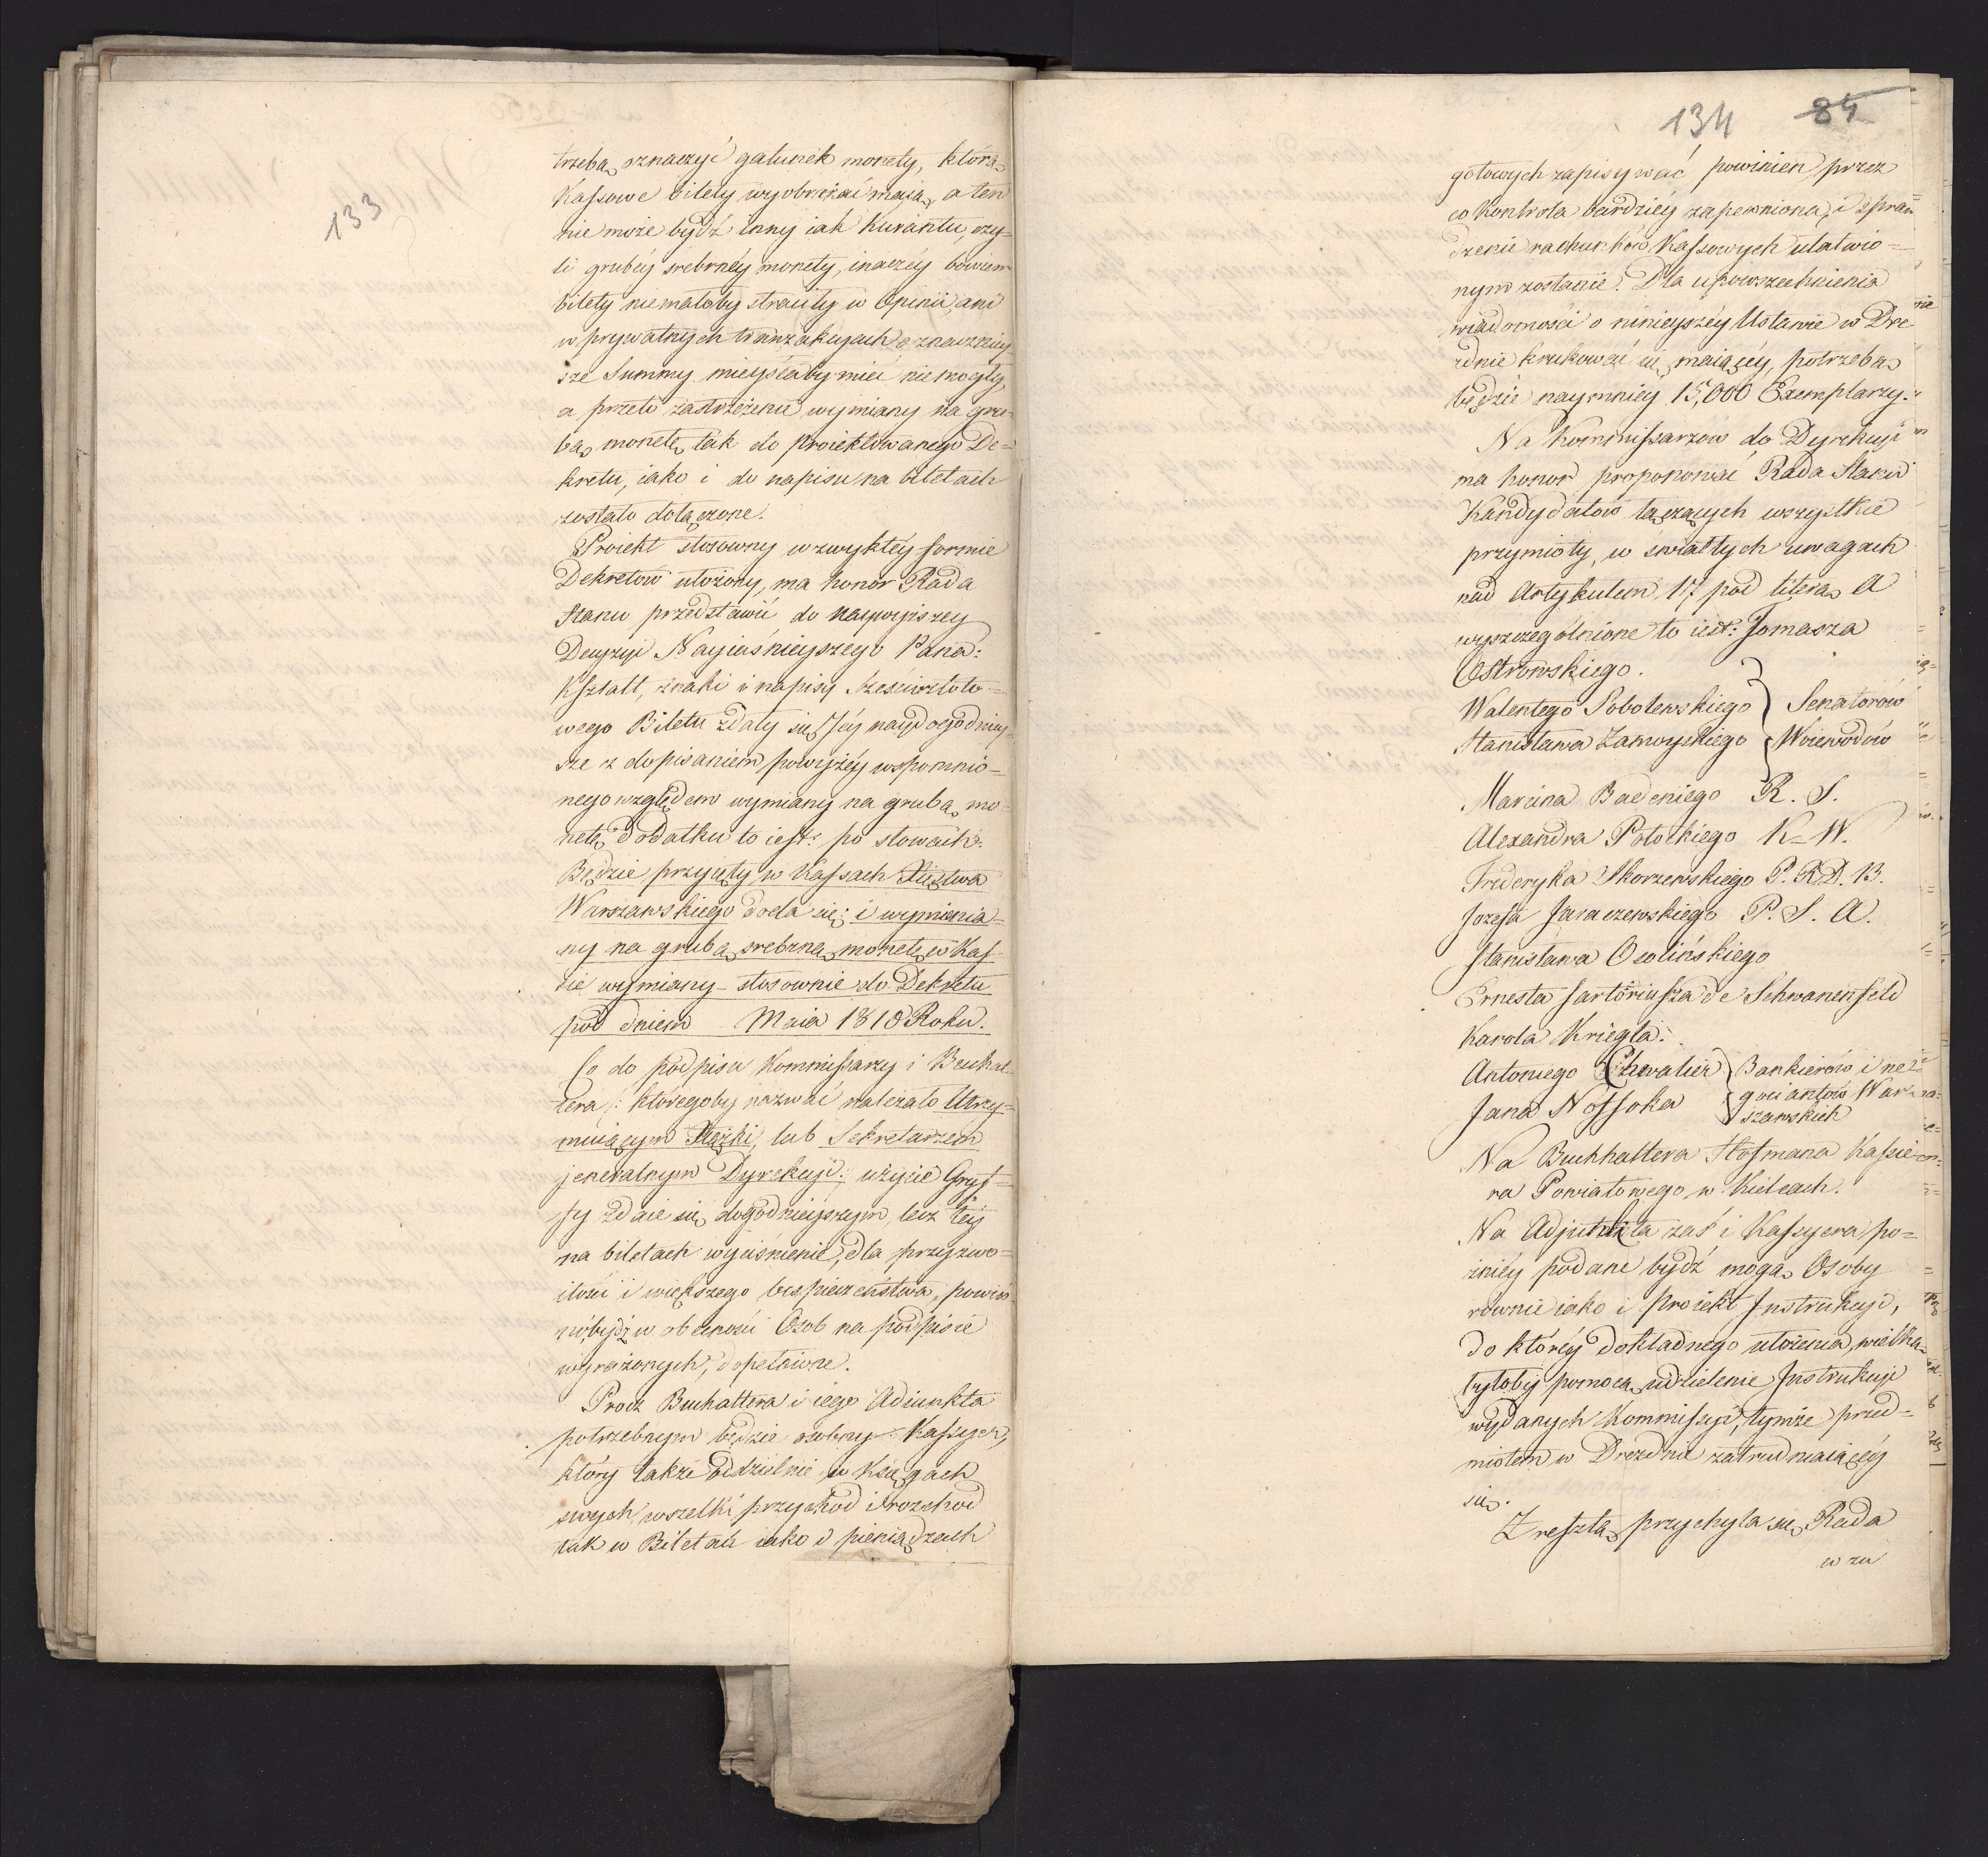 133
trzeba oznaczyć gatunek monety, którą
Kassowe bilety wyobrażać mają, a ten
nie może bydź inny iak Kurantu, czy-
li grubéy srebrnéy monety, inaczéy bowiem
bilety niemałoby straciły w Opinii, ani
w prywatnych tranzakcyach o znaczniey-
sze Summy mieyscaby mieć niemogły,
a przeto zastrzeżenie wymiany na gru-
bą monetę tak do proiektowanego De-
kretu, iako i do napisu na biletach
zostało dołączone.
Proiekt stosowny w zwykłéy formie
Dekretow ułożony, ma honor Rada
Stanu przedstawić do naywyiszey
Decyzyi Nayiaśnieyszego Pana:
Kształt, znaki i napisy Sześciozłoto-
wego Biletu zdały się Jéy naydogodniey-
sze z dopisaniem powyżéy wspomnio-
nego względem wymiany na grubą mo-
netę dodatku to iest: po słowach:
Będzie przyięty w Kassach Xięstwa
Warszawskiego doda się: i wymienia-
ny na grubą srebrną monetę w Kas-
sie wymiany stosownie do Dekretu
pod dniem Maia 1810 Roku.
Co do podpisu Kommissarzy i Buchal-
tera /: któregoby nazwać należało Utrzy-
muiącym Xiążki, lub Sekretarzem
jeneralnym Dyrekcyi :/ użycie Gryf-
fy zdaie się dogodnieyszym, lecz téy
na biletach wyciśnienie, dla przyzwo-
itości i większego bespieczeństwa, powin-
no bydź w obecności Osob na podpisie
wyrażonych, dopełnione.
Procz Buchaltera i iego Adiunkta
potrzebnym będzie osobny Kassyer,
który także oddzielnie w Księgach
swych wszelki przychod i rozchod
tak w Biletach iako i pieniądzach
134 84
gotowych zapisywać powinien, przez
co Kontrola bardziéy zapewniona, i spraw-
dzenie rachunków Kassowych ułatwio-
nym zostanie. Dla upowszechnienia
wiadomości o ninieyszéy Ustawie w Dre-
zdnie drukować się maiącéy, potrzeba
będzie naymniéy 15,000 Exemplarzy.
Na Kommissarzow do Dyrekcyi
ma honor proponować Rada Stanu
Kandydatow łączących wszystkie
przymioty, w światłych uwagach
nad Artykułem 17 pod literą A
wyszczególnione to iest: Tomasza
Ostrowskiego.
Walentego Sobolewskiego } Senatorow
Stanisława Zamoyskiego } Woiewodów
Marcina Badeniego R. S.
Alexandra Potockiego K-W.
Frederyka Skorzewskiego P. R. D. B.
Jozefa Jaraczewskiego P. S. A.
Stanisława Osolińskiego
Ernesta Sartoriusza de Schwanenfeld
Karola Kriegla.
Antoniego Chevalier } Bankierów i ne-
Jana Nossoka } gociantów War-
szawskich
Na Buchhaltera Hofmana Kassie-
ra Powiatowego w Kielcach.
Na Adjunkta zaś i Kassyera po-
źniéy podane bydź mogą Osoby
równie iako i proiekt Jnstrukcyi,
do któréy dokładnego ułożenia, wielką
byłoby pomocą udzielenie Jnstrukcyi
wydanych Kommissyi, tymże przed-
miotem w Dreznie zatrudniaiącéy
się.
Zresztą przychyla się Rada
w zu